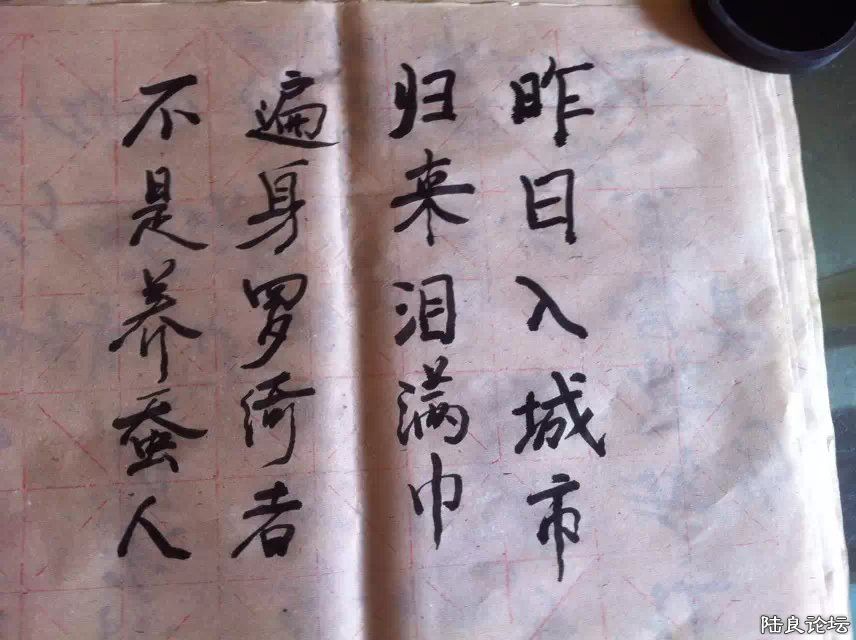 昨日入城市
归来泪满巾
遍身罗绮者
不是养蚕人
陆良论坛